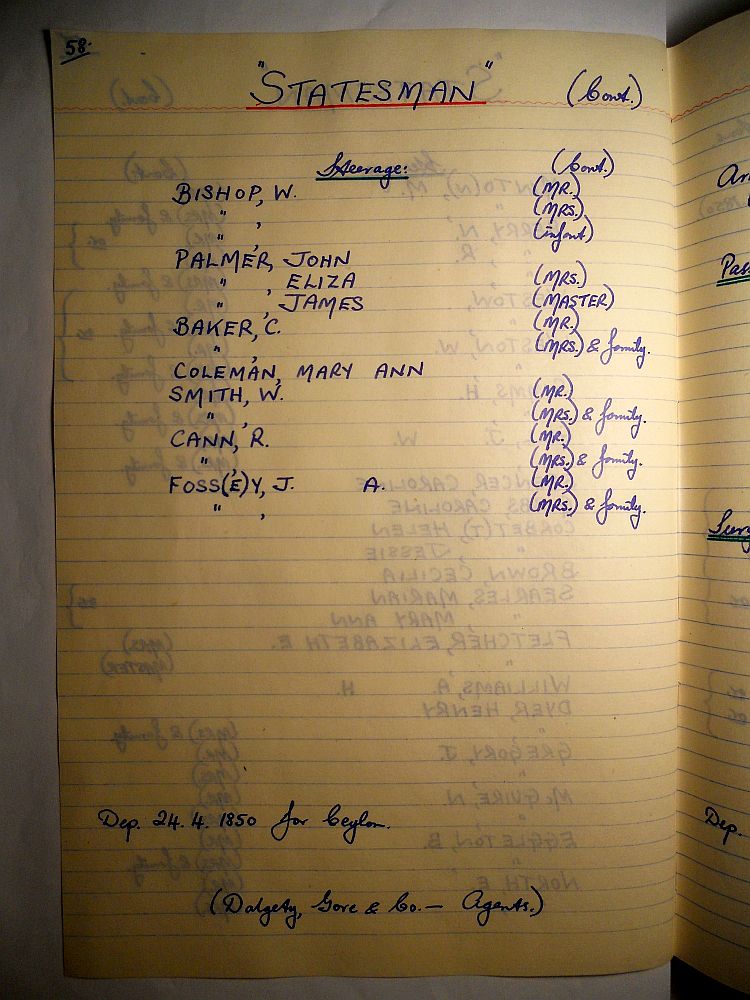 58.
"STATESMAN" (Cont.)
Steerage: (Cont.)
BISHOP, W. (MR.)
" , (MRS.)
" , (infant)
PALMER, JOHN
" , ELIZA (MRS.)
" , JAMES (MASTER)
BAKER, C. (MR.)
" , (MRS.) & family.
COLEMAN, MARY ANN
SMITH, W. (MR.)
" , (MRS.) & family.
CANN, R. (MR.)
" , (MRS.) & family.
FOSS(E)Y, J. A. (MR.)
" , (MRS.) & family.
Dep. 24. 4. 1850 for Ceylon.
(Dalgety, Gore & Co. — Agents.)
An
Pas
Surg
Dep.